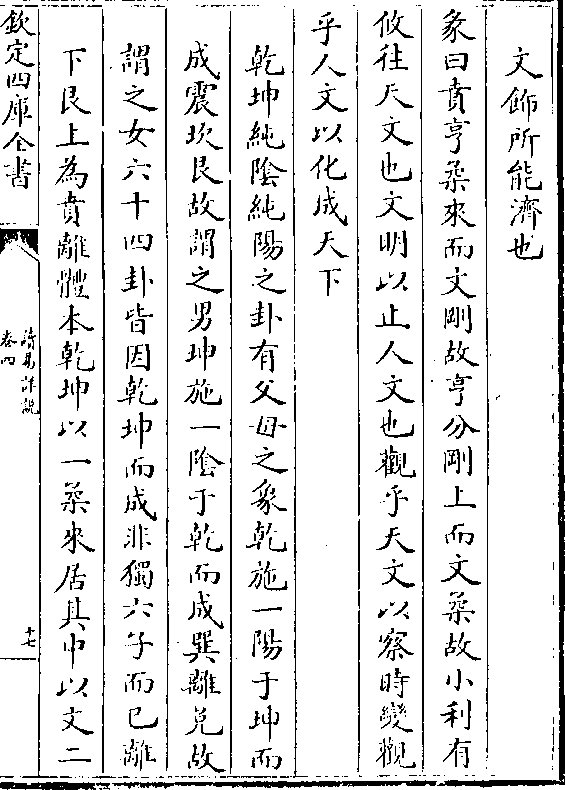 文飾所能濟也
彖曰賁亨柔來而文剛故亨分剛上而文柔故小利有
攸往天文也文明以止人文也觀乎天文以察時變觀
乎人文以化成天下
乾坤純陰純陽之卦有父母之象乾施一陽于坤而
成震坎艮故謂之男坤施一陰于乾而成巽離兌故
謂之女六十四卦皆因乾坤而成非獨六子而已離
下艮上為賁離體本乾坤以一柔來居其中以文二
欽定四庫全書
讀易詳說
卷四
十七